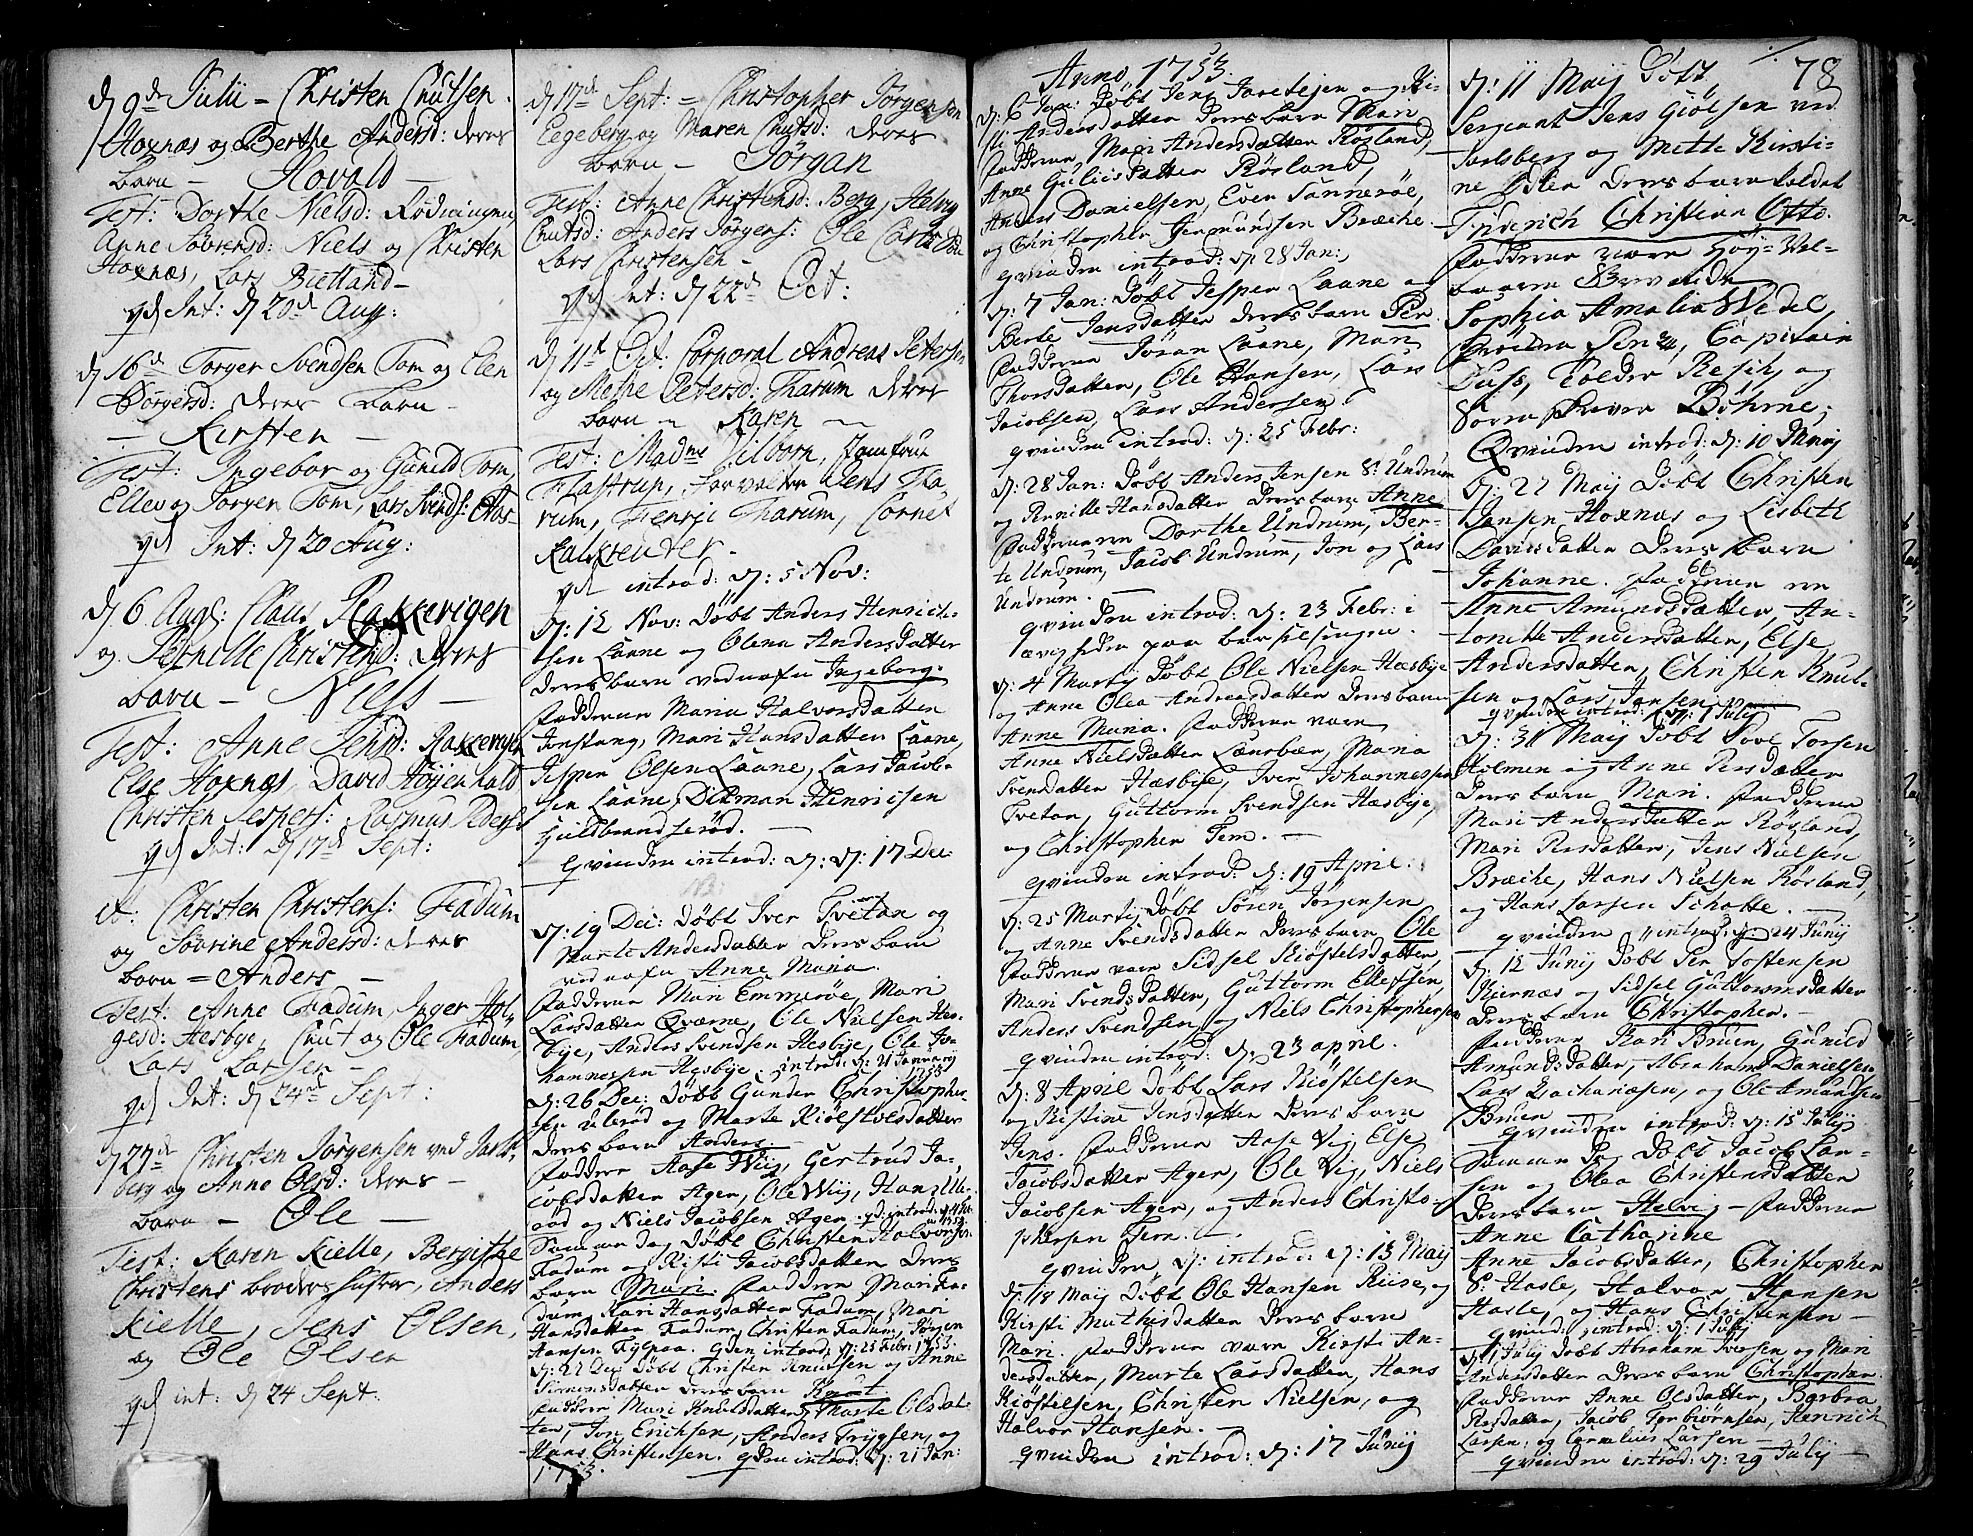 d 9de Julii - Christen Cnutsen
Hoxnæs og Berthe Andersd: deres
barn - Hovald -
Test: Dorthe Nielsd: Rødningen
Anne Sovrensd: Niels og Christen
Hoxnæs, Lars Bietland -
qd Int: d 20de Aug:
d 16de Torger Svendsen Tom og Elen
Jörgersd: deres barn -
- Kirsten -
Test: Ingebor og Gunild Tom,
Ellev og Jorgen Tom, Lars Svends: Aas-
qd Int: d 20 Aug:
d 6 Aug: Claus Rakkevigen
og Pernille Christensd: deres
barn - Niels -
Test: Anne Jensd: Rakkevigen
Else Hoxnæs, David Høyenhald
Christen Jespers: Rasmus Peders:
qd Int: d 17de Sept:
et: Christen Christens: Fadum
og Sovrine Andersd: deres
barn = Anders -
Test: Anne Fadum, Inger Hol-
gesd: Hesbye, Cnut og Ole Fadum
Lars Larsen -
qd Int: d 24de Sept:
d 27de Christen Jörgensen ved Jarls-
berg og Anne Olsd: deres -
barn - Ole -
Test: Karen Kielle, Bergithe
Christens broders hustrue, Anders
Kielle, Jens Olsen,
og Ole Olsen
qd int: d 24 Sept:
d 17de Sept: = Christopher Jörgensen
Eegeberg og Maren Cnutsd: deres
barn - Jörgan
Test: Anne Christensd: Berg, Helvig
Cnutsd: Anders Jörgens: Ole
Lars Christensen -
qd Int: d 22de Oct:
d 11te Oct: Corporal Andreas Petersen
og Mette Petersd: Tharum deres
barn - Karen -
Test: Madme Vilborn, Jomfrue
Flastrup, Forvalter Jens Tha-
rum, Henrje Tharum, Cornet
Falkenter -
qd introd: d: 5 Nov:
d: 12 Nov: döbt Anders Henrich-
sen Laane og Olena Andersdatter
deres barn ved nafn Ingeborg.
fadderne Maria Halvorsdatter
Jonstang, Mari Hansdatter Laane,
Jesper Olsen Laane, Lars Jacob-
sen Laane, Ditman Henricsen
Huldbrandserød. -
qvinden introd: d: 17 Dec:
NB:
d: 19 Dec: döbt Iver Tvetan og
Marte Andersdatter deres barn
ved nafn Anne Maria.
fadderne Mari Emmeröe, Mari
Larsdatter Qværne, Ole Nielsen Hes-
bye, Anders Svendsen Hesbye, Ole Jo-
hannessen Hesbye. introd: d: 21 January
1753
d: 26 Dec: döbt Gunder Christopher-
sen Ulerød og Marte Kiöstelsdatter
deres barn Anders.
faddere Aase Wiig, Gertrud Ja-
cobsdatter Ager, Ole Wiig, Hans Ule-
röd og Niels Jacobsen Agen. qd: introd:
Samme dag döbt Christen Halvorsen
Fadum og Kisti Jacobsdatter deres
barn Mari. faddere Mari Fa-
dum, Kari Hansdatter Fadum, Mari
Hansdatter Fadum, Christen Fadum, Jörgen
Hansen Fylpaa. qden introd: d: 25 Febr: 1753.
d: 27 Dec: döbt Christen Knudsen og Anne
Simensdatter deres barn Knut.
faddere Mari Knudsdatter, Marte Olsdat-
ter, Jon Erichsen, Anders Trygsen, og
Hans Christensen. qden introd: d: 21 Jan:
1753.
Anno 1753.
d: 6 Jan: döbt Jens Taretejen og Ki-
sti Andersdatter deres barn Mari
fadderne, Mari Andersdatter Rösland,
Anne Guliksdatter Rösland,
Anders Danielsen, Even Sanneröe,
og Christopher Jermundsen Bræche.
qvinden introd: d: 28 Jan:
d: 7 Jan: döbt Jesper Laane og
Berte Jensdatter deres barn Per.
fadderne Jöran Laane, Mari
Thorsdatter, Ole Hansen, Lars
Jacobsen, Lars Andersen.
qvinden introd: d: 25 Febr:
d: 28 Jan: döbt Anders Jensen S: Undrum
og Pernille Hansdatter deres barn Anne
fadderne Dorthe Undrum, Ber-
te Undrum, Jacob Undrum, Jon og Lars
Undrum. -
qvinden introd: d: 23 Febr: i
paa barselsengen.
d: 4 Martij döbt Ole Nielsen Hæsbye
og Anne Olea Andreasdatter deres barn
Anne Maria. fadderne vare
Anne Nielsdatter Lensbær, Maria
Svendsdatter Hæsbye, Iver Johannessen
Tvetan, Guttorm Svendsen Hæsbye,
og Christopher Fem. -
qvinden introd: d: 19 April.
d: 25 Martij döbt Sören Jörgensen
og Anne Svendsdatter deres barn Ole
fadderne vare Sidsel Kiöstelsdatter,
Mari Svendsdatter, Guttorm Ellefsen,
Anders Svendsen og Niels Christophersen
qvinden introd: d: 23 april.
d: 8 April döbt Lars Kiöstelsen
og Kistine Jensdatter deres barn
Jens. fadderne Aase Vig, Else
Jacobsdatter Ager, Ole Vig, Niels
Jacobsen Ager, og Anders Christo-
phersen Fem. -
qvinden introd: d: 13 Maij
d: 18 Maij döbt Ole Hansen Riise, og
Kirsti Mathisdatter deres barn
Mari. fadderne vare Kirsti An-
dersdatter, Marte Larsdatter, Hans
Kiöstelsen, Christen Nielsen, og
Halvor Hansen. -
qvinden introd: d: 17 Junij
78
d: 11 Maij Döbt
Sergeant Jens Giötsen ved
Jarlsberg og Mette Kirsti-
ne Olsen deres barn kaldet
Friderich Christian Otto.
fadderne vare Höy-Vel-
baarne
Sophia Amalia Wedel,
Capitain
Duss, Tolder Resch, og
Böhme,
Qvinden introd: d: 10 Junij
d: 27 Maij döbt Christen
Jansen Hoxnæs og Lisbeth
Davidsdatter deres barn
Johanne. fadderne ere
Anne Amundsdatter, An-
tonette Andersdatter, Else
Andersdatter, Christen Knut-
sen og Lars Jansen
qvinden introd: d: 1 Julij
d: 31 Maij döbt Tove Torsen
Holmen og Anne Persdatter
deres barn Mari. fadderne
Mari Andersdatter Rösland,
Mari Persdatter, Jens Nielsen
Bræche, Hans Nielsen Rösland,
og Hans Larsen Schatte. -
qvinden introd: d: 24 Junij
d: 12 Junij döbt Per Tostensen
Kjernæs og Sidsel Guttormsdatter
deres barn Christopher. -
fadderne Kari Bruen, Gunild
Amundsdatter, Abraham Danielsen
Lars Zachariæsen, og Ole Amundsen
Bruen
qvinden introd: d: 15 Julij
Samme Dag döbt Jacob Lar-
sen og Olea Christensdatter
deres barn Helvig - fadderne
Anne Catharine
Anne Jacobsdatter, Christopher
S: Hasle, Halvor Hansen
Hasle, og Hans Christensen -
qvind: introd: d: 1 Julij
d: 1 Julij döbt Abraham Iversen og Mari
Andersdatter deres barn Christopher.
fadderne Anne Olsdatter, Barbra
Persdatter, Jacob Torbiörnsen, Henrich
Larsen, og Cornelius Larsen -
qvinden introd: d: 29 Julij -